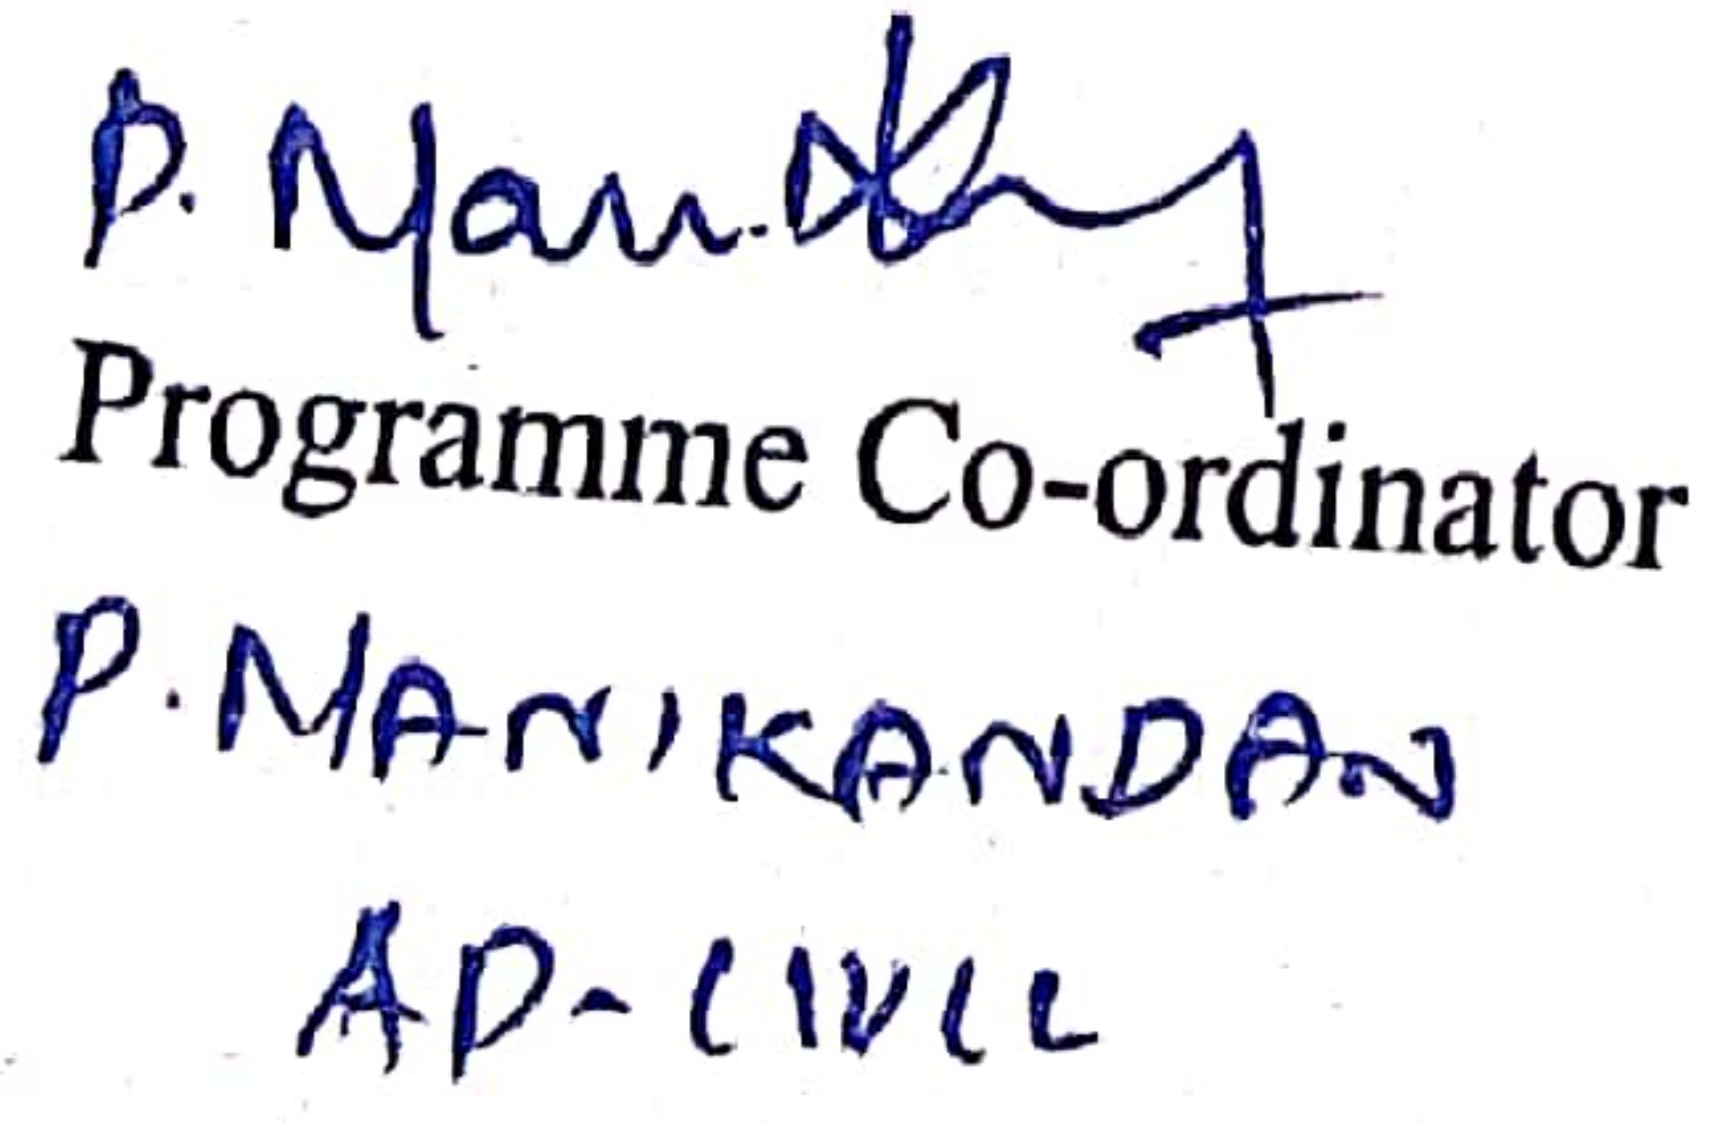 P. Mani
Programme Co-ordinator
P. MANIKANDAN
AP-CIVIL